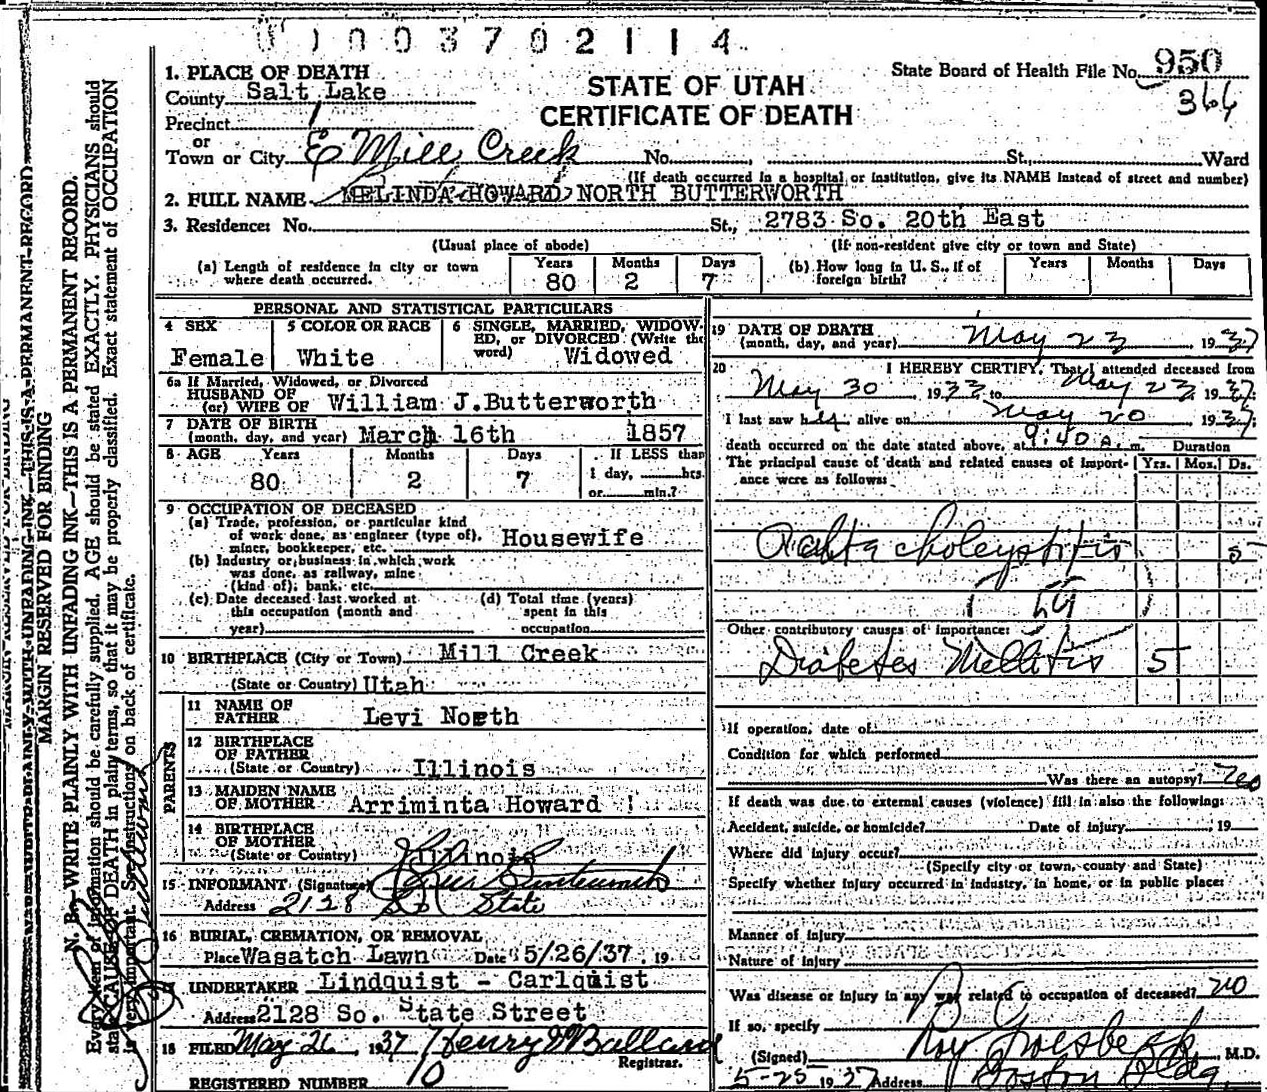 0 0 0 3 7 0 2 1 1 4
STATE OF UTAH
CERTIFICATE OF DEATH
State Board of Health File No. 950
366
1. PLACE OF DEATH
County Salt Lake
Precinct 1
or
Town or City E Mill Creek No. , St., Ward
(If death occurred in a hospital or institution, give its NAME instead of street and number)
2. FULL NAME MELINDA HOWARD NORTH BUTTERWORTH
3. Residence: No. St., 2783 So. 20th East
(Usual place of abode) (If non-resident give city or town and State)
(a) Length of residence in city or town where death occurred. Years 80 Months 2 Days 7
(b) How long in U. S., if of foreign birth? Years Months Days
PERSONAL AND STATISTICAL PARTICULARS
4 SEX Female
5 COLOR OR RACE White
6 SINGLE, MARRIED, WIDOWED, or DIVORCED (Write the word) Widowed
6a If Married, Widowed, or Divorced
HUSBAND OF
(or) WIFE OF William J.Butterworth
7 DATE OF BIRTH
(month, day, and year) March 16th 1857
8 AGE Years 80 Months 2 Days 7 If LESS than 1 day, hrs. or min.?
9 OCCUPATION OF DECEASED
(a) Trade, profession, or particular kind of work done, as engineer (type of), miner, bookkeeper, etc. Housewife
(b) Industry or business in which work was done, as railway, mine (kind of), bank, etc.
(c) Date deceased last worked at this occupation (month and year)
(d) Total time (years) spent in this occupation
10 BIRTHPLACE (City or Town) Mill Creek
(State or Country) Utah
PARENTS
11 NAME OF FATHER Levi North
12 BIRTHPLACE OF FATHER
(State or Country) Illinois
13 MAIDEN NAME OF MOTHER Arriminta Howard
14 BIRTHPLACE OF MOTHER
(State or Country) Illinois
15 INFORMANT (Signature) Butterworth
Address 2128 So State
16 BURIAL, CREMATION, OR REMOVAL
Place Wasatch Lawn Date 5/26/37, 19
17 UNDERTAKER Lindquist - Carlquist
Address 2128 So. State Street
18 FILED May 26, 1937 Henry Ballard
Registrar.
REGISTERED NUMBER 10
19 DATE OF DEATH
(month, day, and year) May 23, 1937
20 I HEREBY CERTIFY, That I attended deceased from
May 30 1933 to May 23, 1937.
I last saw her alive on May 20, 1937;
death occurred on the date stated above, at 9:40 a. m. Duration
The principal cause of death and related causes of importance were as follows: Yrs. Mos. Ds.
choleystitis 5
Other contributory causes of importance:
Diabetes Mellitis 5
If operation, date of
Condition for which performed
Was there an autopsy? no
If death was due to external causes (violence) fill in also the following:
Accident, suicide, or homicide? Date of injury , 19
Where did injury occur?
(Specify city or town, county and State)
Specify whether injury occurred in industry, in home, or in public place:
Manner of injury
Nature of injury
Was disease or injury in any way related to occupation of deceased? no
If so, specify
(Signed) Roy Groesbeck, M.D.
5-25 1937 Address Boston Bldg
MARGIN RESERVED FOR BINDING
N. B.—WRITE PLAINLY WITH UNFADING INK—THIS IS A PERMANENT RECORD.
Every item of information should be carefully supplied. AGE should be stated EXACTLY. PHYSICIANS should
state CAUSE OF DEATH in plain terms, so that it may be properly classified. Exact statement of OCCUPATION
is very important. See instructions on back of certificate.